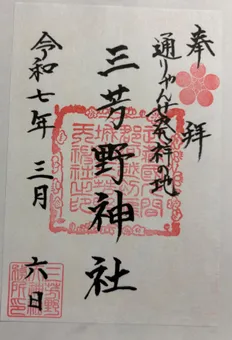 奉拝
通りゃんせ発祥の地
三芳野神社
令和七年 三月 六日